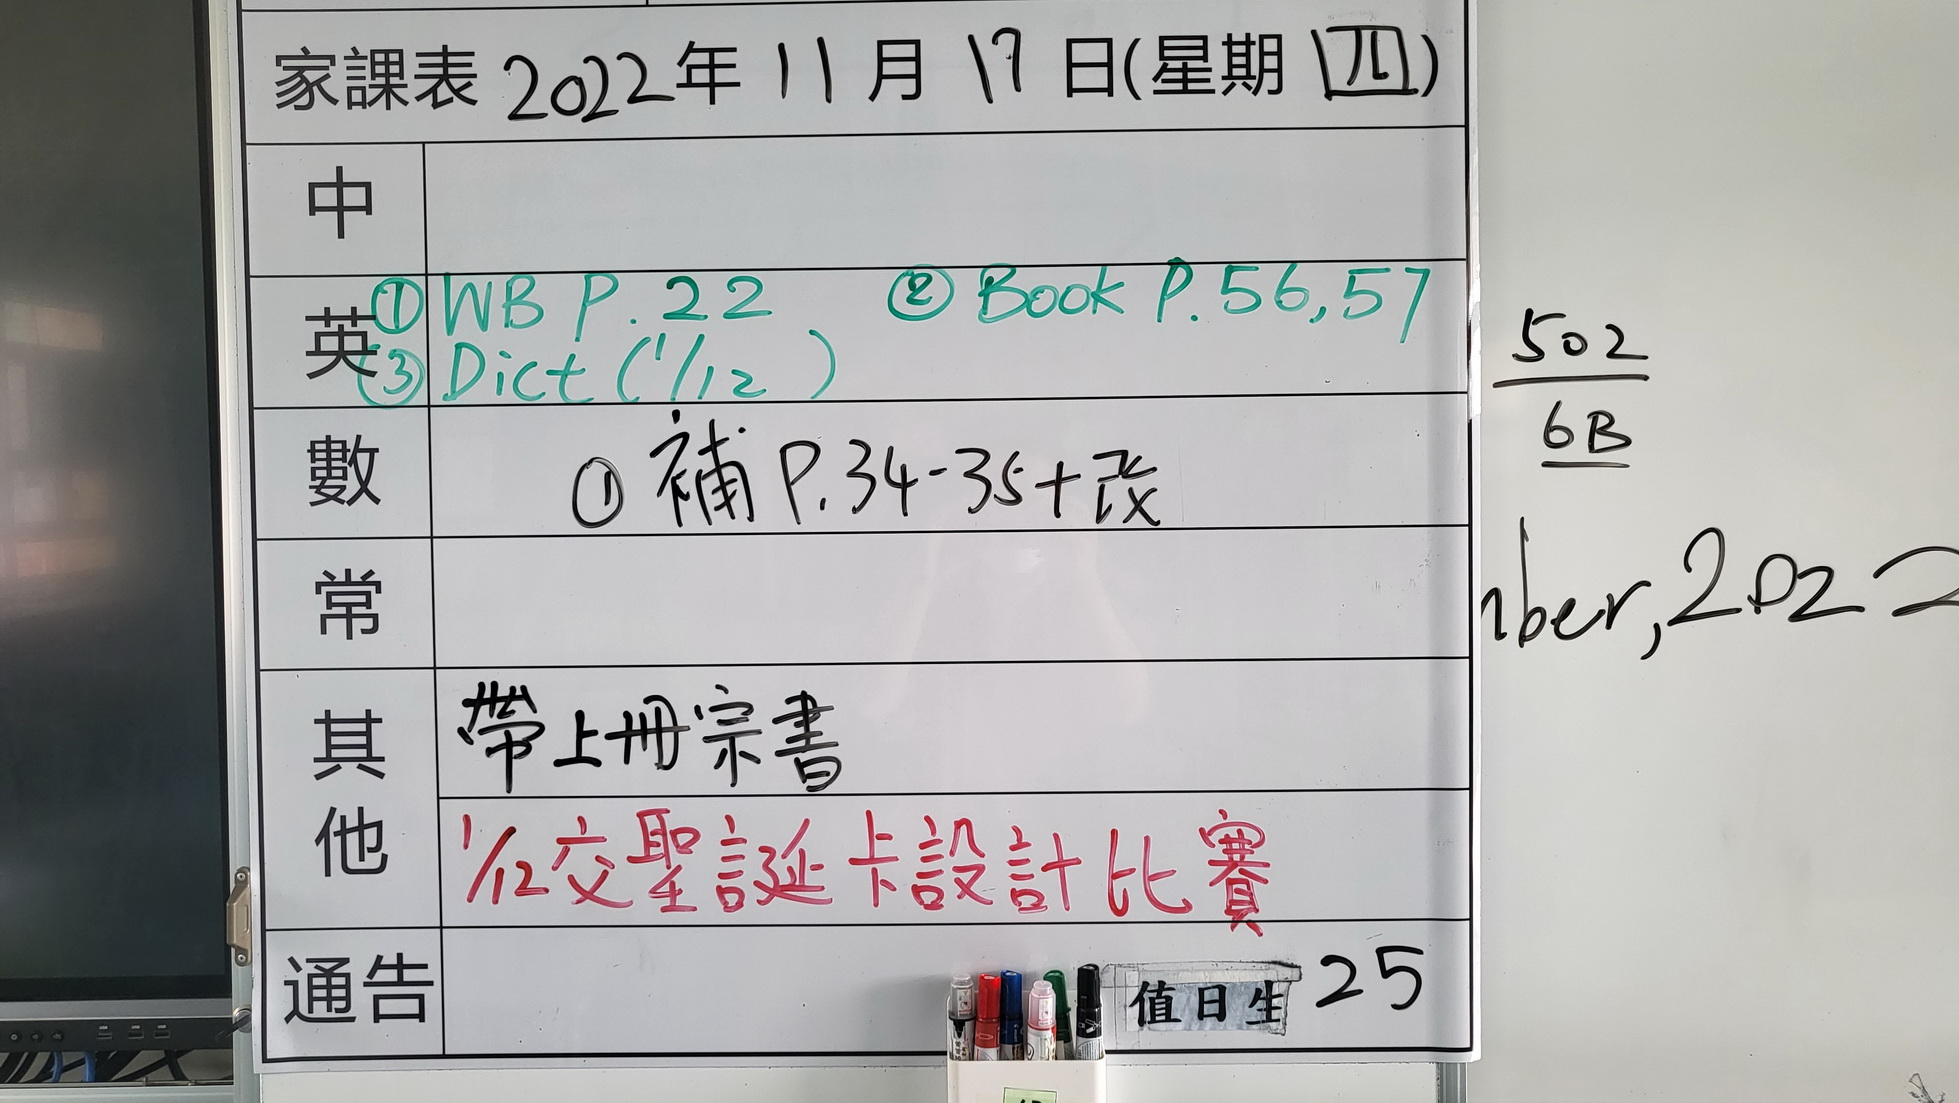 家課表 2022年 11月 17日(星期 四)
中
英 ① WB P.22 ② Book P.56,57
③ Dict (1/12 )
數 ① 補 P.34-35+改
常
其他 帶上冊宗書
1/12交聖誕卡設計比賽
通告
值日生 25
502
6B
mber,2022